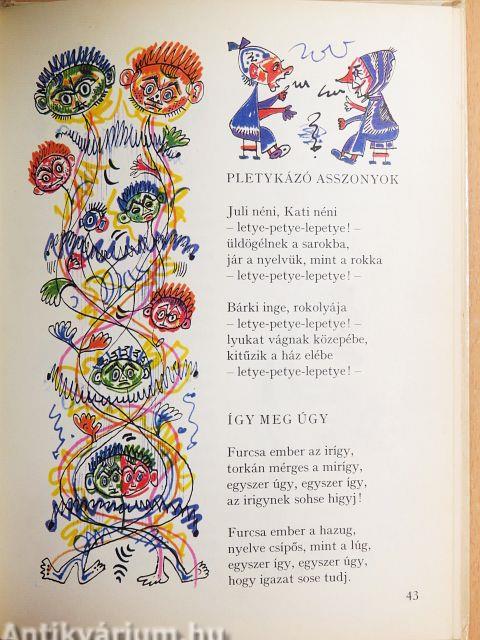 PLETYKÁZÓ ASSZONYOK
Juli néni, Kati néni
– letye-petye-lepetye! –
üldögélnek a sarokba,
jár a nyelvük, mint a rokka
– letye-petye-lepetye! –
Bárki inge, rokolyája
– letye-petye-lepetye! –
lyukat vágnak közepébe,
kitűzik a ház elébe
– letye-petye-lepetye! –
ÍGY MEG ÚGY
Furcsa ember az irígy,
torkán mérges a mirígy,
egyszer úgy, egyszer így,
az irigynek sohse higyj!
Furcsa ember a hazug,
nyelve csípős, mint a lúg,
egyszer így, egyszer úgy,
hogy igazat sose tudj.
43
Antikvárium.hu